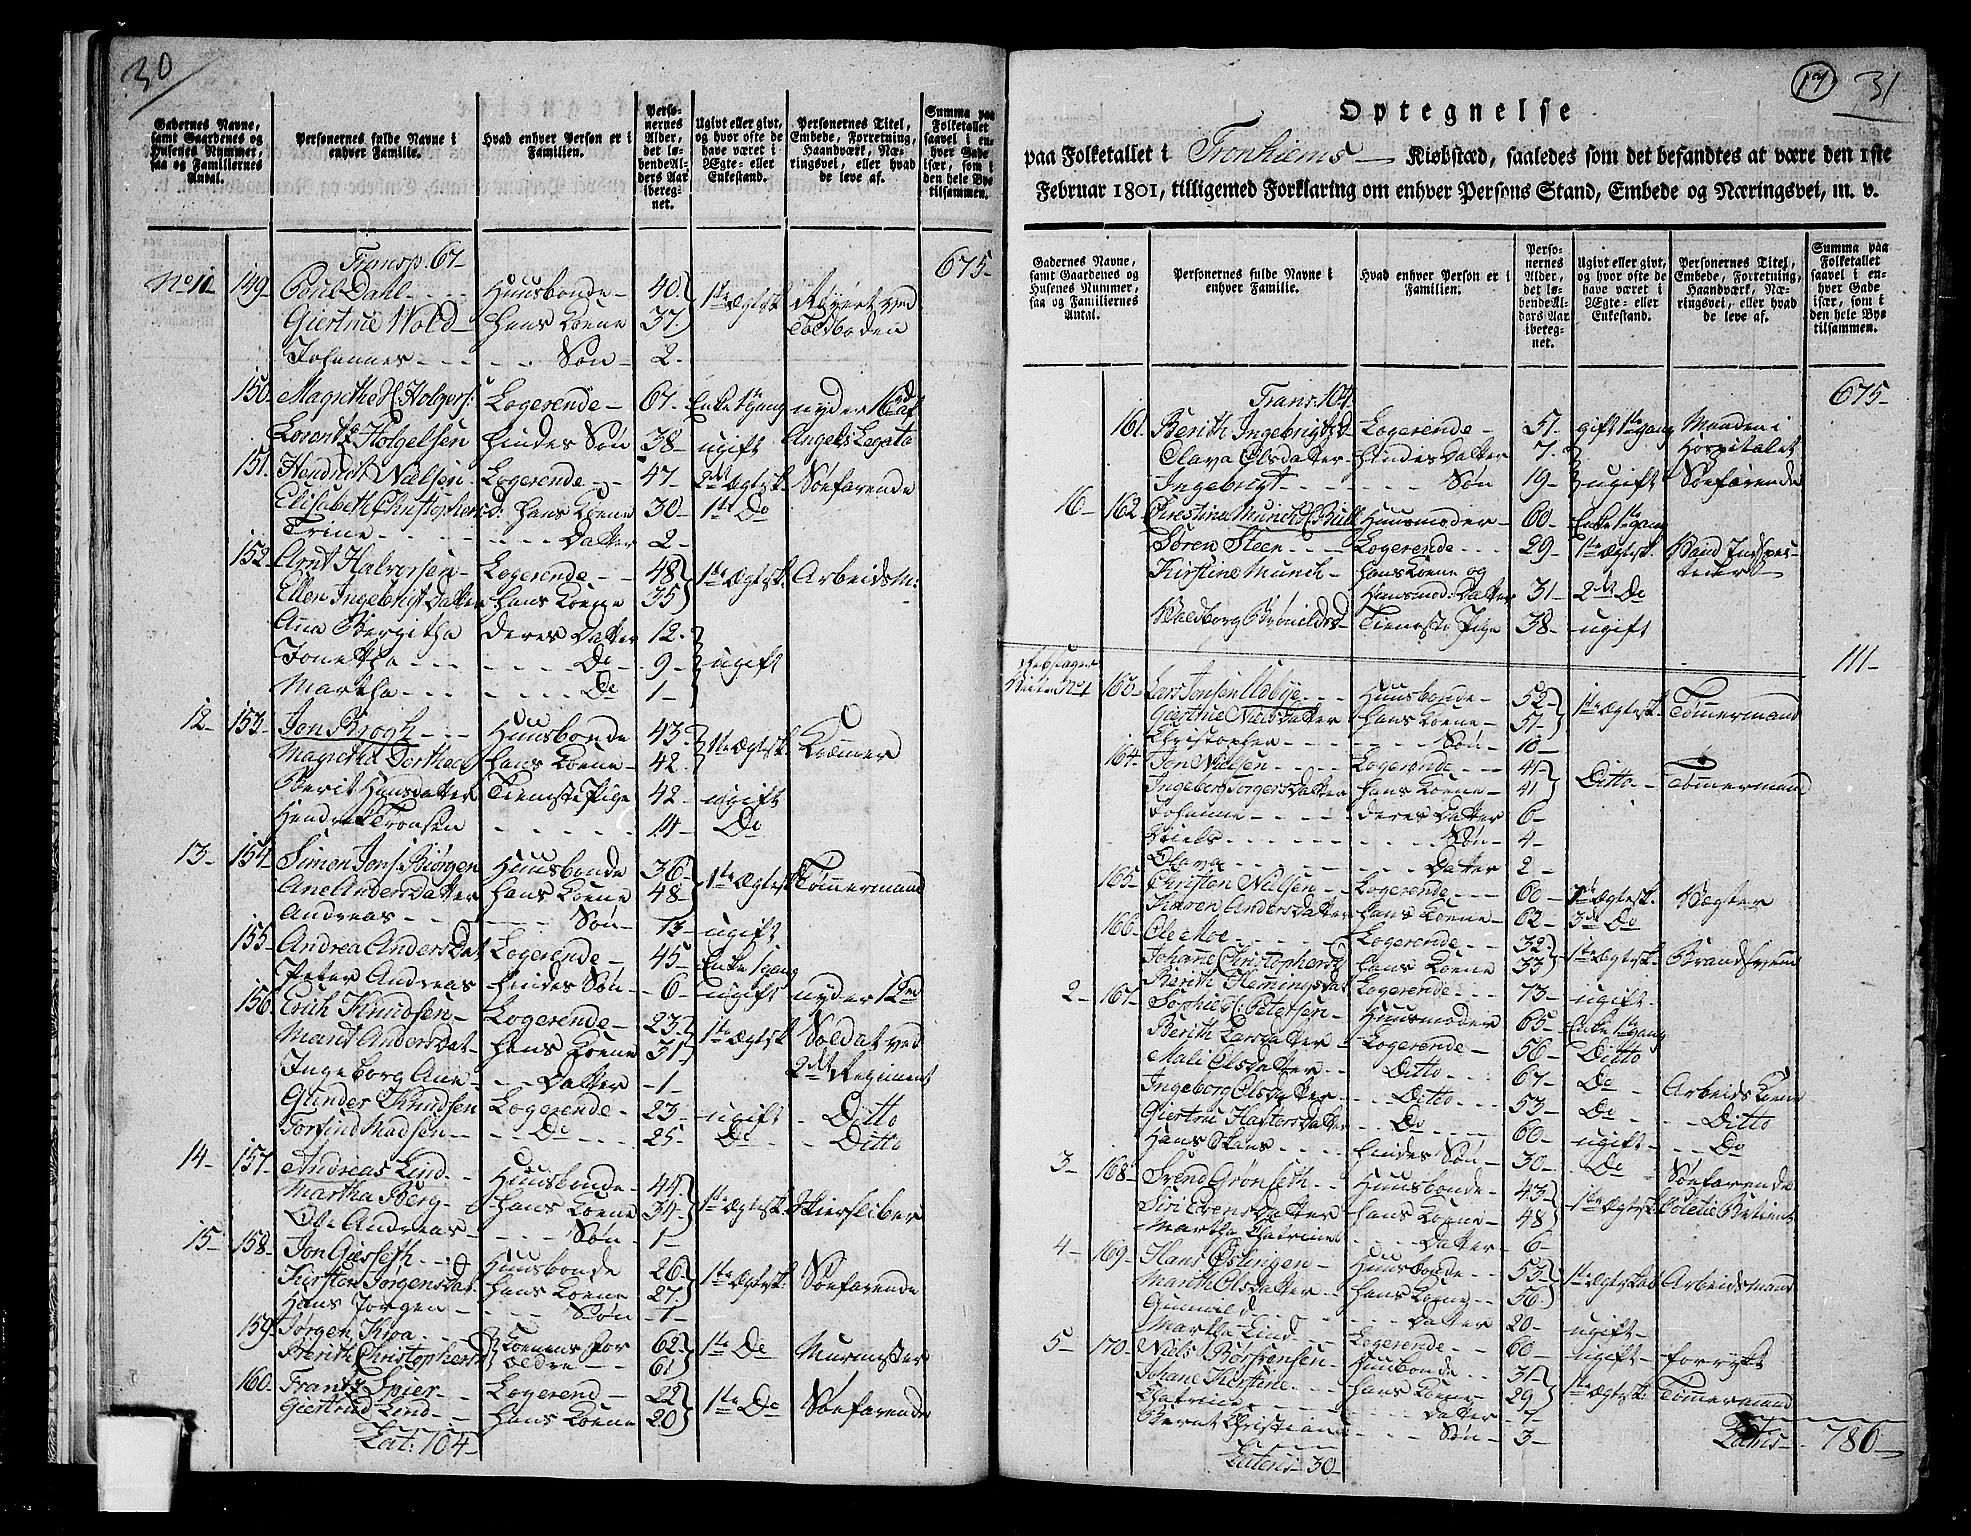 30
Gadernes Navne, samt Gaardenes og Husenes Nummer, saa og Familiernes Antal.
Personernes fulde Navne i enhver Familie.
Hvad enhver Person er i Familien.
Personernes Alder, det løbende Alders Aar iberegnet.
Ugivt eller givt, og hvor ofte de have været i Ægte- eller Enkestand.
Personernes Titel, Embede, Forretning, Haandværk, Næringsvei, eller hvad de leve af.
Summa paa Folketallet saavel i enhver Gade især, som i den hele Bye tilsammen.
Transp. 67 675
No 11 149 Poul Dahl Huusbonde 40 1ste Ægtesk. ved
Giertrue Wold Hans Koene 37 Toldboden
Johannes Søn 2
150 Magrethe H: Holgers: Logerende 67 Enke 1 gang nyder af
Lorentz Holgelsen Hindes Søn 38 ugift Angels Legata
151 Hendrich Nielsen Logerende 47 2det Ægtesk. Søefarende
Elisabeth Christophers D: Hans Koene 30 1ste Do
Trine Datter 2
152 Arnt Halvorsen Logerende 48 1ste Ægtesk. Arbeids M:
Ellen Ingebrigt Datter Hans Koene 35
Ana Bergitha deres Datter 12
Jonetha Do 9 ugift
Martha Do 1
12 153 Jon Brogh Huusbonde 43 1te Ægtesk. Kræmer
Magretha Dorthea Hans Koene 42
Berit Hansdatter Tieneste Pige 42 ugift
Hendrik Tronsen 14 Do
13 154 Simon Jons: Biørgen Huusbonde 36 1ste Ægtesk. Tømermand
Ane Anders Datter Hans Koene 48
Andreas Søn 13 ugift
155 Andrea Anders Dat Logerende 45 Enke 1 gang
Peter Andreas Hindes Søn 6 ugift nyder
156 Erich Knudsen Logerende 23 1ste Ægtesk. Soldat ved
Marit Anders Dat Hans Koene 31 2det Regiment
Ingeborg Ane Datter 1
Gunder Knudsen Logerende 23 ugift Ditto
Torfind Madsen Do 25 Do Ditto
14 157 Andreas Lind Huusbonde 44 1ste Ægtesk.
Martha Berg Hans Koene 34
Ole Andreas Søn 1
15 158 Jon Giesseth Huusbonde 26 1ste Ægtesk. Søefarende
Kirsten Jorgens Dat Hans Koene 27
Hans Jorgen Søn 1
159 Jørgen Koenens For 62 1ste Do Murmester
Berith Christophers D ældre 61
160 Frantz Logerend 22 1ste Do Søefarende
Giertrud Lind Hans Koene 20
Lat: 104
17 31
Optegnelse
paa Folketallet i Tronhiems Kiøbstæd, saaledes som det befandtes at være den 1ste
Februar 1801, tilligemed Forklaring om enhver Persons Stand, Embede og Næringsvei, m. v.
Gadernes Navne, samt Gaardenes og Husenes Nummer, saa og Familiernes Antal.
Personernes fulde Navne i enhver Familie.
Hvad enhver Person er i Familien.
Personernes Alder, det løbende Alders Aar iberegnet.
Ugivt eller givt, og hvor ofte de have været i Ægte- eller Enkestand.
Personernes Titel, Embede, Forretning, Haandværk, Næringsvei, eller hvad de leve af.
Summa paa Folketallet saavel i enhver Gade især, som i den hele Bye tilsammen.
Trans: 104 675
161 Berith Ingebrigts D Logerende 51 gift 1ste gang Manden i
Olava Olsdatter Hindes Datter 7 Hospitalet
Ingebrigt Søn 19 ugift Søefarende
16 162 Christina Munch H: Bull Huusmoder 60 Enke 1ste gang
Søren Steen Logerende 29 1ste Ægtesk.
Kirstine Munch Hans Koene og
Huusmod: Datter 31 2det Do
Waldborg Tieneste Pige 38 ugift
111
No 1 163 Lars Jensen Udbÿe Huusbonde 52 1ste Ægtesk. Tømermand
Giertrue Niels Datter Hans Koene 51
Christopher Søn 10
164 Jon Nielsen Logerende 41 Ditto Tømermand
Ingeborg Jorgens Datter Hans Koene 41
Johanna deres Datter 6
Niels Søn 4
Olava Datter 2
165 Christen Nielsen Logerende 60 Ægtesk. Vægter
Karen Anders Datter Hans Koene 62 3de Do
166 Ole Moe Logerende 32 1ste Ægtesk. Brandsvend
Johane Christophers D Hans Koene 33
Berith Hemings Dat Logerende 73 ugift
2 167 Sophie H: Petersen Huusmoder 65 Enke 1ste gang
Berith Larsdatter Logerende 56 Ditto
Mali Olsdatter Ditto 67 Do Arbeids Koene
Ingeborg Olsdatter Ditto 53 Do Ditto
Giertru Hastors Datter Do 60 ugift Do
Hans Hindes Søn 30 Do Søefarende
3 168 Svend Grønseth Huusbonde 43 1ste Ægtesk. Politie Betient
Siri Hans Koene 48
Martha Chatrine Datter 6
4 169 Hans Huusbonde 53 1ste Ægteskab Arbeidsmand
Marith Olsdatter Hans Koene 56
Gunnild Datter 20 ugift
Martha Lind Logerende 60 ugift forrykt
5 170 Niels Huusbonde 31 1ste Ægtesk. Tømermand
Johane Kirstine Hans Koene 29
Chatrine Datter 7
Bernt Christian Søn 3
Lateris 30 Latus 786